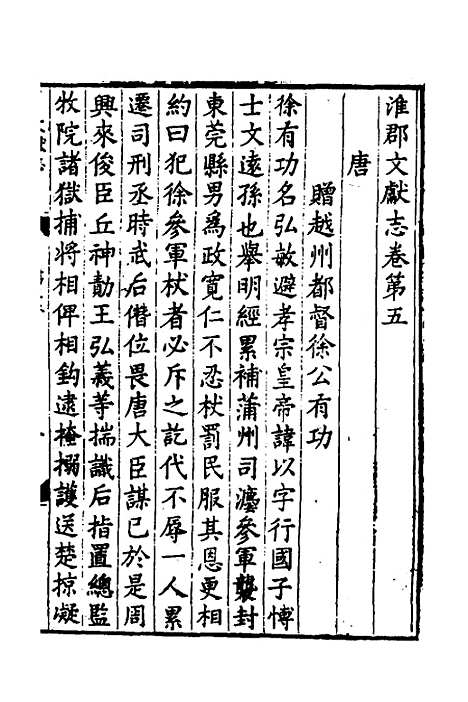 淮郡文獻志卷第五
唐
贈越州都督徐公有功
徐有功名弘敏避孝宗皇帝諱以字行國子博
士文遠孫也舉明經累補蒲州司灋參軍襲封
東莞縣男爲政寬仁不忍杖罰民服其恩更相
約曰犯徐參軍杖者必斥之訖代不辱一人累
遷司刑丞時武后僭位畏唐大臣謀已於是周
興來俊臣丘神勣王弘義等揣識后指置總監
牧院諸獄捕將相俾相鈎逮掩搦護送楚掠凝